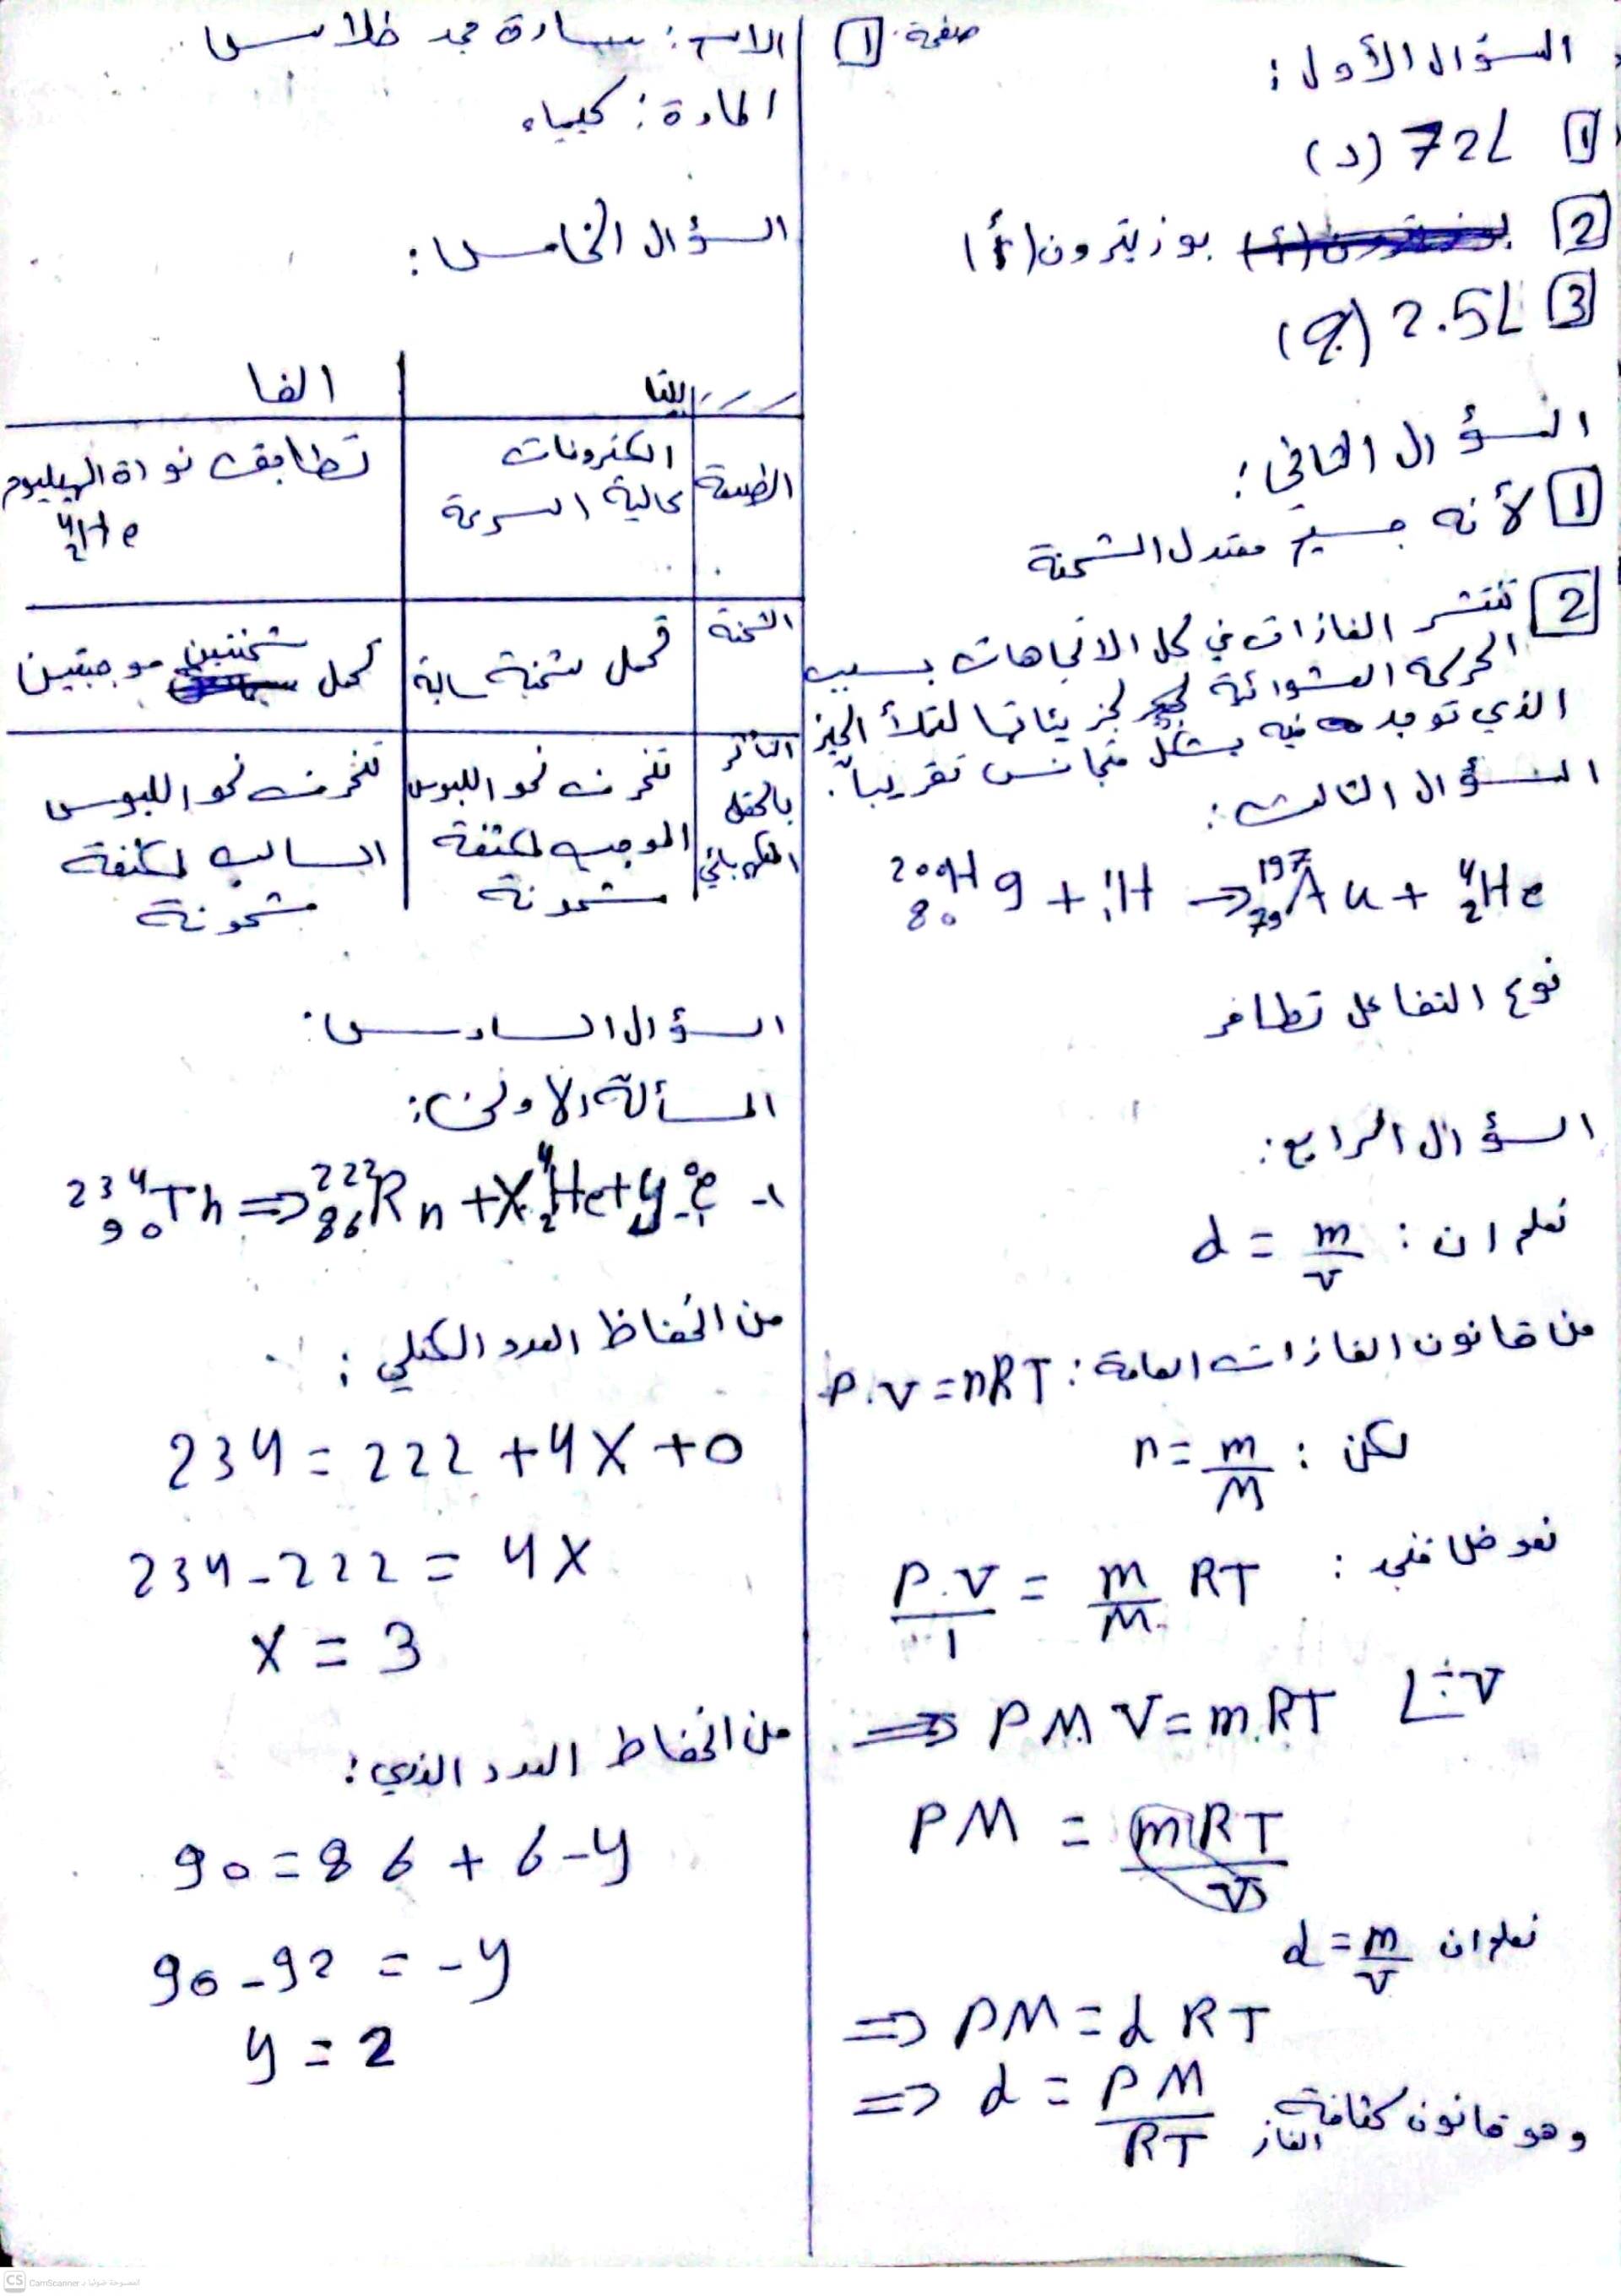 صفحة: 1
السؤال الأول:
1 72L (د)
2 بوزيترون (أ)
3 2.5L (ج)
السؤال الثاني:
1 لأنه جسيم معتدل الشحنة
2 تنتشر الغازات في كل الاتجاهات بسبب
الحركة العشوائية لجزيئاتها لتملأ الحيز
الذي توجد فيه بشكل متجانس تقريباً.
السؤال الثالث:
²⁰⁰₈₀Hg + ¹₁H → ¹⁹⁷₇₉Au + ⁴₂He
نوع التفاعل تطافر
السؤال الرابع:
نعلم ان: d = m/v
من قانون الغازات العامة: P.V = nRT
لكن: n = m/M
نعوض فنجد: P.V/1 = m/M RT
⇒ PMV = mRT ÷V
PM = mRT/V
نعلم ان d = m/v
⇒ PM = d RT
⇒ d = PM/RT وهو قانون كثافة الغاز
الاسم: سارة محمد خلاسي
المادة: كيمياء
السؤال الخامس:
بيتا | الفا
الطبيعة | الكترونات عالية السرعة | تطابق نواة الهيليوم ⁴₂He
الشحنة | تحمل شحنة سالبة | تحمل شحنتين موجبتين
التأثر بالحقل الكهربائي | تنحرف نحو اللبوس الموجب لمكثفة مشحونة | تنحرف نحو اللبوس السالب لمكثفة مشحونة
السؤال السادس:
المسألة الاولى:
1- ²³⁴₉₀Th ⇒ ²²²₈₆Rn + X ⁴₂He + y ⁰₋₁e
من انحفاظ العدد الكتلي:
234 = 222 + 4X + 0
234 - 222 = 4X
X = 3
من انحفاظ العدد الذري:
90 = 86 + 6 - y
90 - 92 = -y
y = 2
المسوحة ضوئيا بـ CamScanner
CS